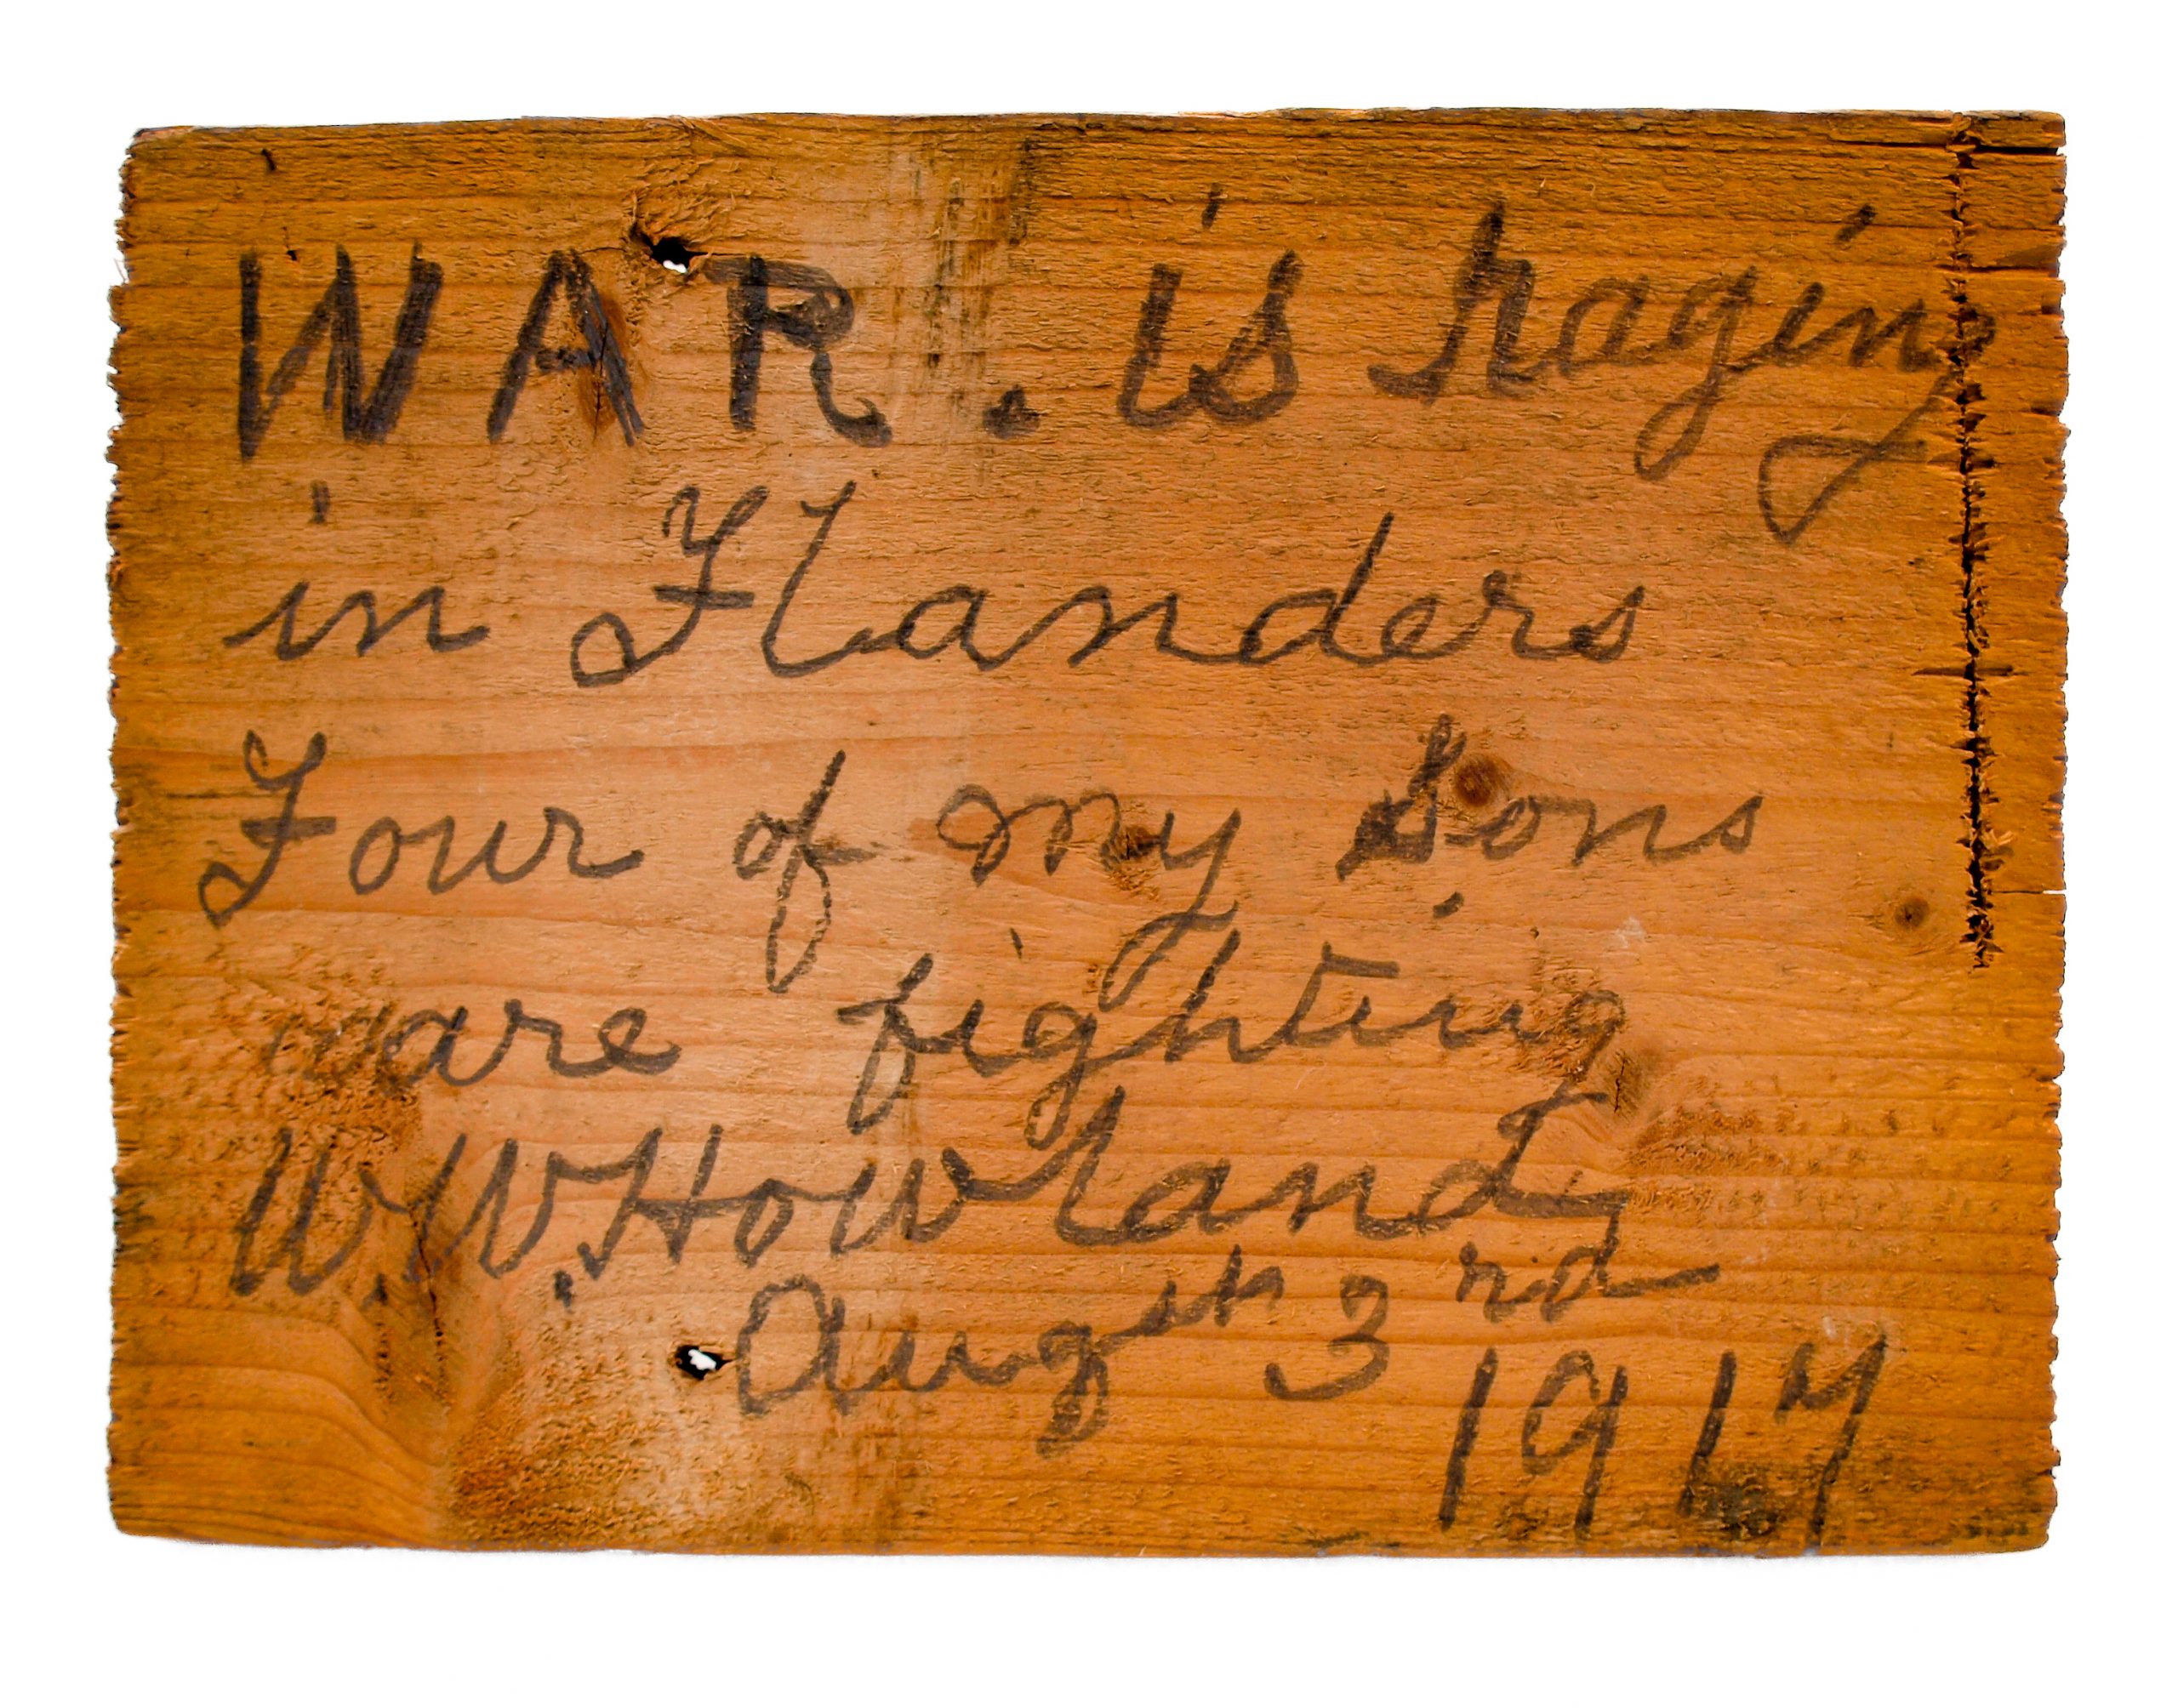 WAR. is raging
in Flanders
Four of my Sons
are fighting
W. W. Howland
Aug 3rd
1917